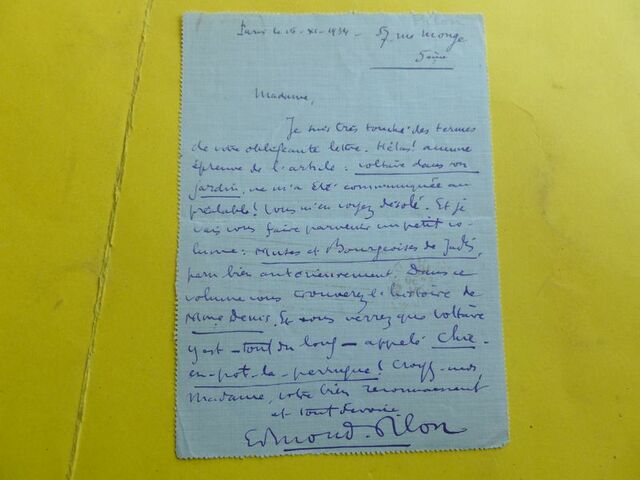 Pilon
Paris le 16-XI-1934 - 57 rue Monge
5ème
Madame,
Je suis très touché des termes
de votre obligeante lettre. Hélas! aucune
épreuve de l'article: Voltaire dans son
jardin, ne m'a été communiquée au
préalable! Vous m'en voyez désolé. Et je
vais vous faire parvenir un petit vo-
lume: Muses et Bourgeoises de Jadis,
paru bien antérieurement. Dans ce
volume vous trouverez l'histoire de
Mme Denis. Et vous verrez que Voltaire
y est - tout du long - appelé Chie-
en-pot-la-perruque! Croyez-moi,
Madame, votre bien reconnaissant
et tout dévoué
Edmond Pilon